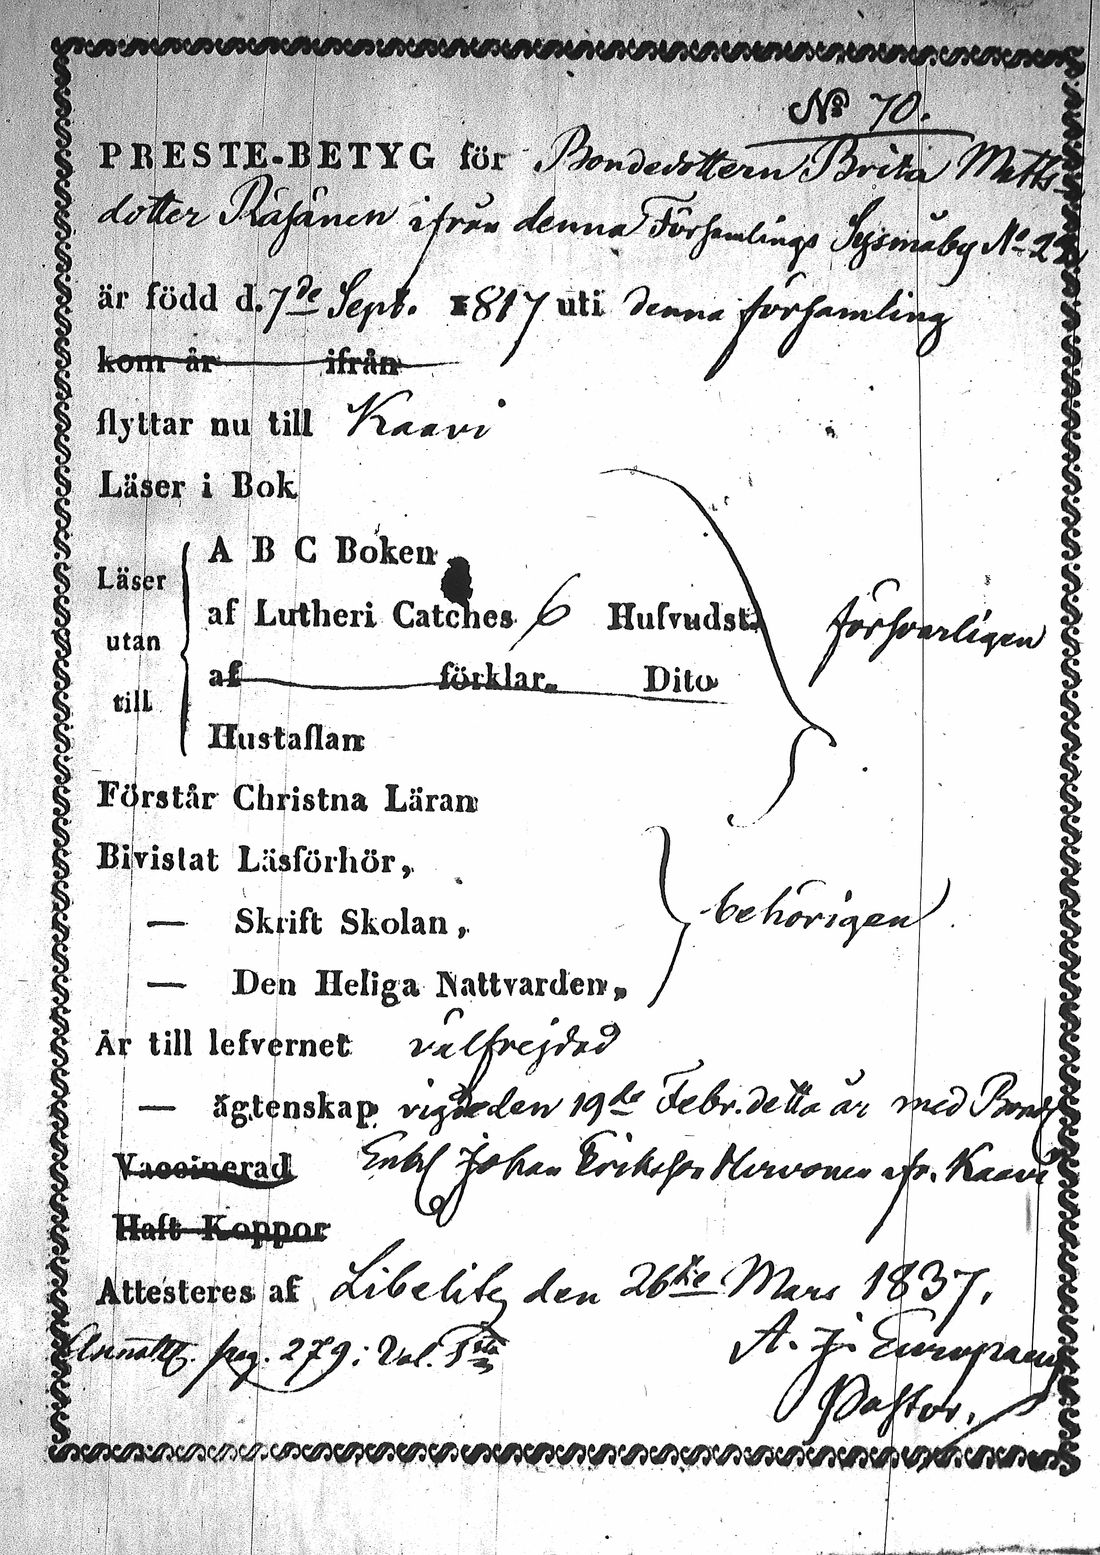 No 70.
PRESTE-BETYG för Bondedottern Brita Matts-
dotter Räsänen ifrån denna Församlings Sysmäby No 22
är född d. 7de Sept. 1817 uti denna församling
kom år ifrån
flyttar nu till Kaavi
Läser i Bok
Läser utan till
A B C Boken
af Lutheri Catches 6 Hufvudst.
försvarligen
af förklar. Dito
Hustaflan
Förstår Christna Läran
Bivistat Läsförhör,
— Skrift Skolan,
behörigen
— Den Heliga Nattvarden,
Är till lefvernet välfrejdad
— ägtenskap vigde den 19de Febr. detta år med Bond
Vaccinerad Enkl Johan Eriksson Hirvonen ifr. Kaavi
Haft Koppor
Attesteres af Libelits den 26te Mars 1837.
pag. 279: Vol. 1sta
A. J. Europaeus
Pastor.